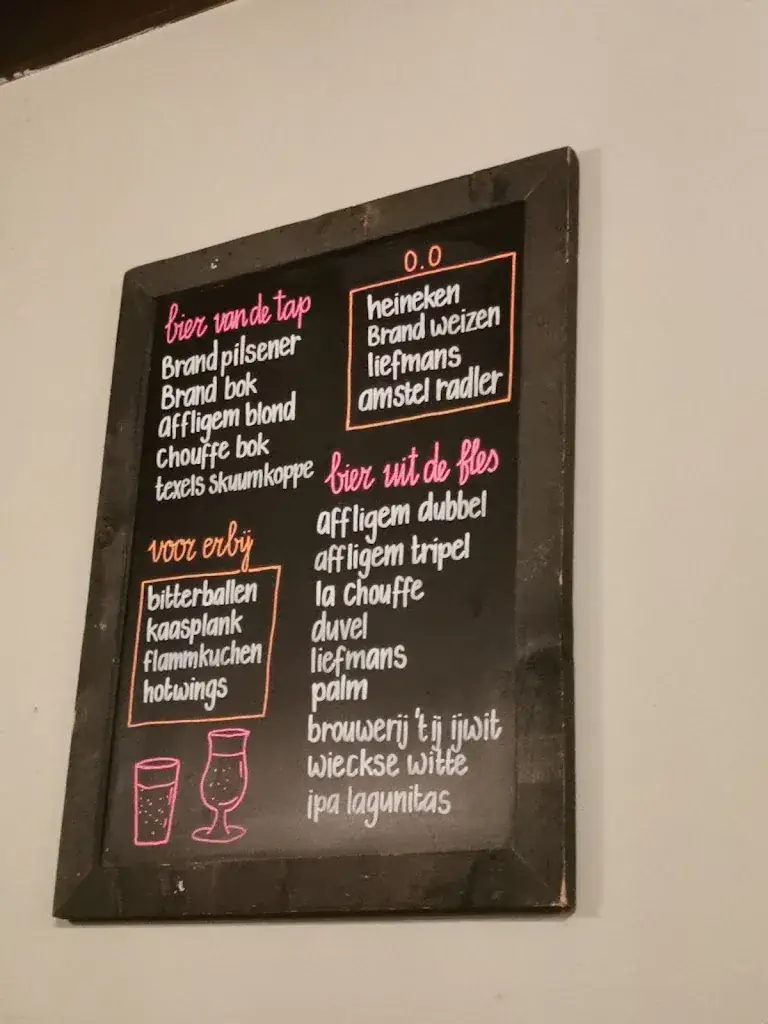 bier van de tap
Brand pilsener
Brand bok
affligem blond
chouffe bok
texels skuumkoppe
voor erbij
bitterballen
kaasplank
flammkuchen
hotwings
0.0
heineken
Brand weizen
liefmans
amstel radler
bier uit de fles
affligem dubbel
affligem tripel
la chouffe
duvel
liefmans
palm
brouwerij 't ij ijwit
wieckse witte
ipa lagunitas